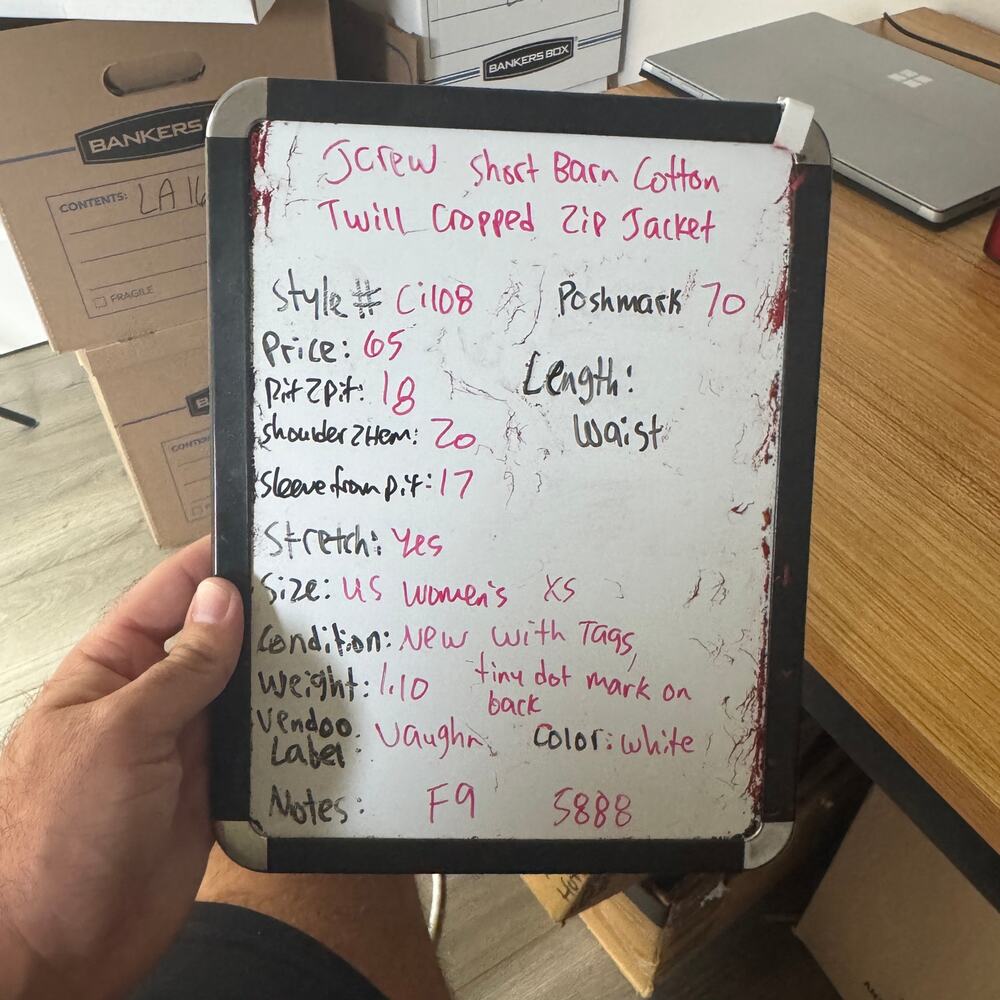 BANKERS BOX
BANKERS
CONTENTS: LA 16
FRAGILE
Jcrew short Barn Cotton
Twill Cropped Zip Jacket
Style# Ci108 Poshmark 70
Price: 65
Pit2pit: 18
Length:
Shoulder2Hem: 20
Waist
Sleeve from pit: 17
Stretch: Yes
Size: US Women's XS
Condition: New with Tags,
tiny dot mark on
back
Weight: 1.10
Vendoo
Label: Vaughn Color: white
Notes: F9 5888